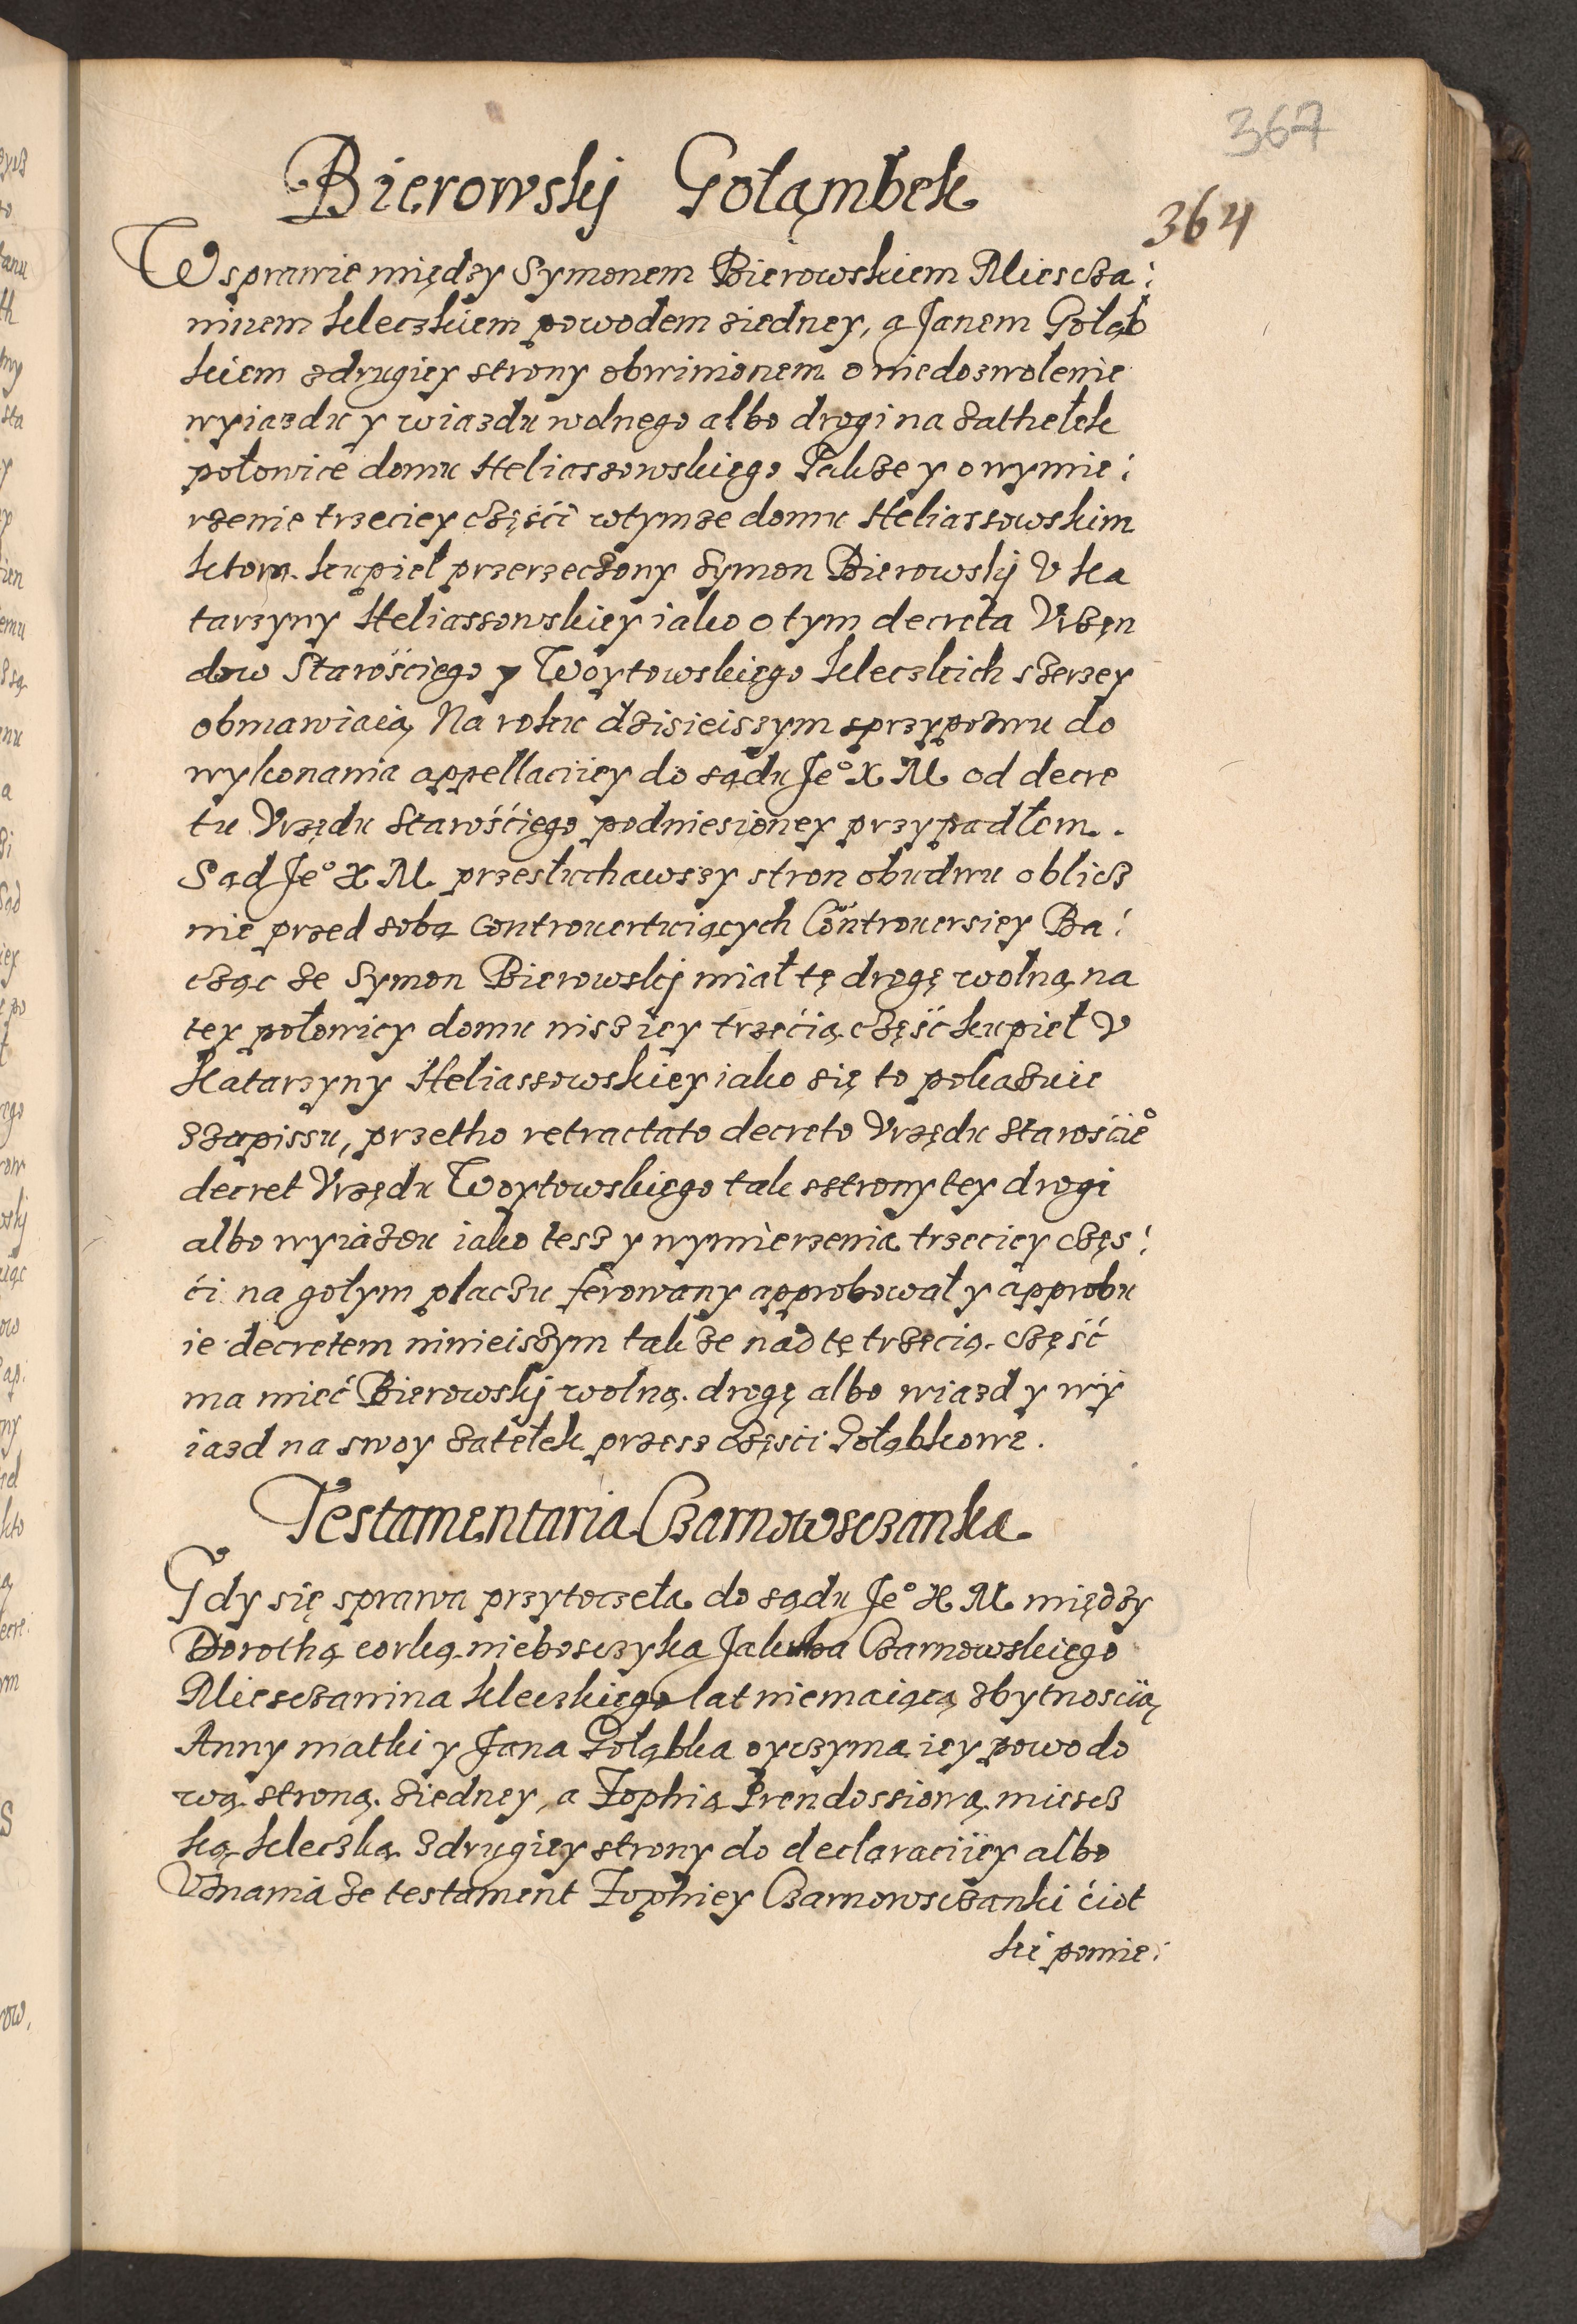 367
364
Bierowskj Gołąmbek
W sprawie między Symonem Bierowskiem Miescza:
ninem kleczkiem powodem ziedney, a Janem Gołąb
kiem zdrugiey strony obwinionem o niedozwolenie
wyiazdu y wiazdu wolnego albo drogi na zathełek
połowice domu Heliaszowskiego Takze y o wymie:
rzenie trzeciey części wtymze domu Heliassowskim
ktorą kupieł przerzeczony Symon Bierowskj V Ka
tarzyny Heliassowskiey iako o tym decreta Vrzęn
dow Starościego y Woytowskiego kleczkich szerzey
obmawiaią, Na roku dzisieiszym sprzypozwu do
wykonania appellaciiey do sądu Je° X M od decre
tu Vrzędu Starościego podniesioney przypadłem.
Sąd Je° X M przesłuchawszy stron obudwu oblicz
nie przed sobą controuertuiących Controuersiey Ba:
cząc ze Symon Bierowskj miał tę drogę wolną na
tey połowicy domu nisz iey trzecią część kupieł V
Katarzyny Heliassowskiey iako się to pokazuie
zzapissu, przetho retractato decreto Vrzędu Staroście°
decret Vrzędu Woytowskiego tak zstrony tey drogi
albo wyiazdu iako tesz y wymierzenia trzeciey częs:
ći na gołym placzu ferowany approbował y approbu
ie decretem ninieiszym tak ze nad tę trzecią część
ma mieć Bierowskj wolną drogę albo wiazd y wy
iazd na swoy zatełek przesz części Gołąbkowe.
Testamentaria Czarnowsczanka
Gdy się sprawa przytoczeła do sądu Je° X M między
Dorothą corką nieboszczyka Jakuba Czarnowskiego
Miesczanina kleczkiego lat niemaiącą zbytnoscią
Anny matki y Jana Gołąbka oyczyma iey powodo
wą stroną ziedney, a Zophią Prendossiową miescz
ką kleczką zdrugiey strony do declaraciiey albo
Vznania ze testament Zophiey Czarnowsczanki ćiot
ki pomie: